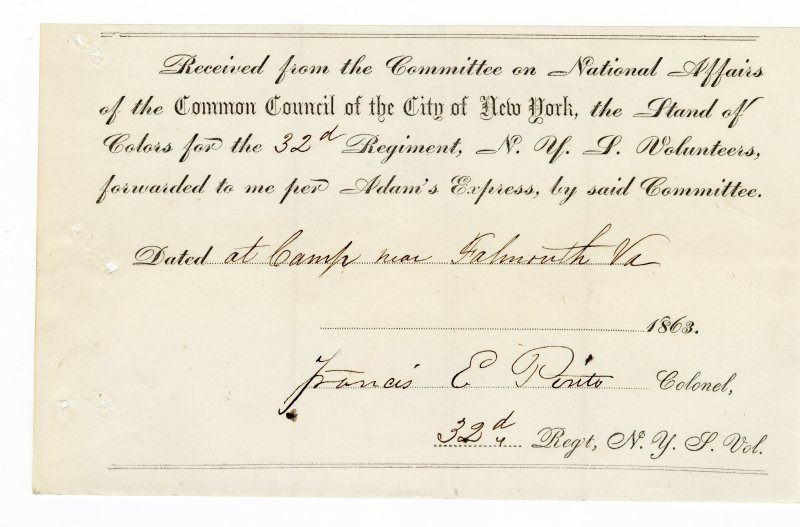 Received from the Committee on National Affairs
of the Common Council of the City of New York, the Stand of
Colors for the 32d Regiment, N. Y. S. Volunteers,
forwarded to me per Adam's Express, by said Committee.
Dated at Camp near Falmouth Va
1863.
Francis E Pinto Colonel,
32d Reg't, N. Y. S. Vol.